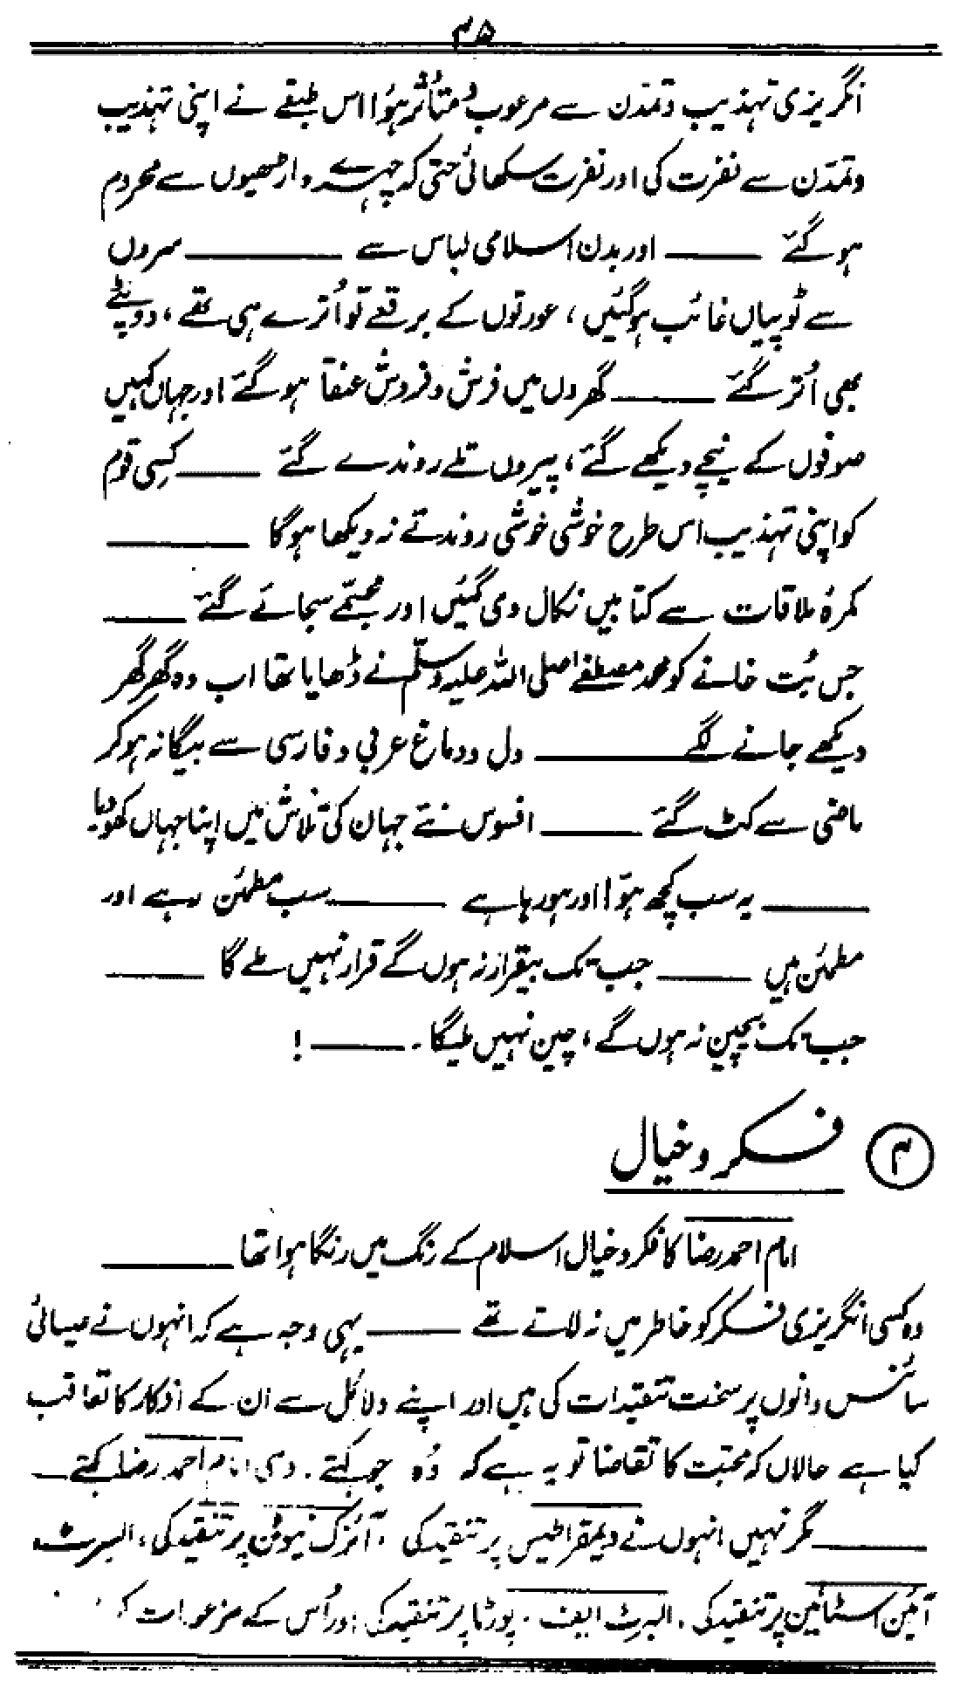 ۳۵
انگریزی تہذیب و تمدن سے مرعوب و متأثر ہوا اس طبقے نے اپنی تہذیب
و تمدن سے نفرت کی اور نفرت سکھائی حتی کہ چہرے داڑھیوں سے محروم
ہو گئے ــــــ اور بدن اسلامی لباس سے ــــــ سروں
سے ٹوپیاں غائب ہوگئیں ، عورتوں کے برقعے تو اُترے ہی تھے ، دوپٹے
بھی اُتر گئے ــــــ گھروں میں فرش و فروش عنقا ہو گئے اور جہاں کہیں
صوفوں کے نیچے دیکھے گئے ، پیروں تلے روندے گئے ــــــ کسی قوم
کو اپنی تہذیب اس طرح خوشی خوشی روندتے نہ دیکھا ہوگا ــــــ
کمرۂ ملاقات سے کتابیں نکال دی گئیں اور مجسّمے سجائے گئے ــــــ
جس بُت خانے کو محمد مصطفےٰ صلی اللہ علیہ وسلّم نے ڈھایا تھا اب وہ گھر گھر
دیکھے جانے لگے ــــــ دل و دماغ عربی و فارسی سے بیگانہ ہو کر
ماضی سے کٹ گئے ــــــ افسوس نئے جہان کی تلاش میں اپنا جہاں کھو دیا
ــــــ یہ سب کچھ ہوّا اور ہو رہا ہے ــــــ سب مطمئن رہے اور
مطمئن ہیں ــــــ جب تک بیقرار نہ ہوں گے قرار نہیں ملے گا ــــــ
جب تک بیچین نہ ہوں گے ، چین نہیں ملیگا ۔ ــــــ !
۳ فکر و خیال
امام احمد رضا کا فکر و خیال اسلام کے رنگ میں رنگا ہوا تھا ــــــ
وہ کسی انگریزی فکر کو خاطر میں نہ لاتے تھے ــــــ یہی وجہ ہے کہ انہوں نے عیسائی
سائنس دانوں پر سخت تنقیدات کی ہیں اور اپنے دلائل سے ان کے افکار کا تعاقب
کیا ہے حالاں کہ محبّت کا تقاضا تو یہ ہے کہ وُہ جو کہتے ۔ وہی امام احمد رضا کہتے ــــــ
ــــــ مگر نہیں انہوں نے دیمقراطیس پر تنقید کی ، آئزک نیوٹن پر تنقید کی ، البرٹ
آئین اسٹائین پر تنقید کی ، البرٹ ایف ۔ پورٹا پر تنقید کی اور اُس کے مزعومات